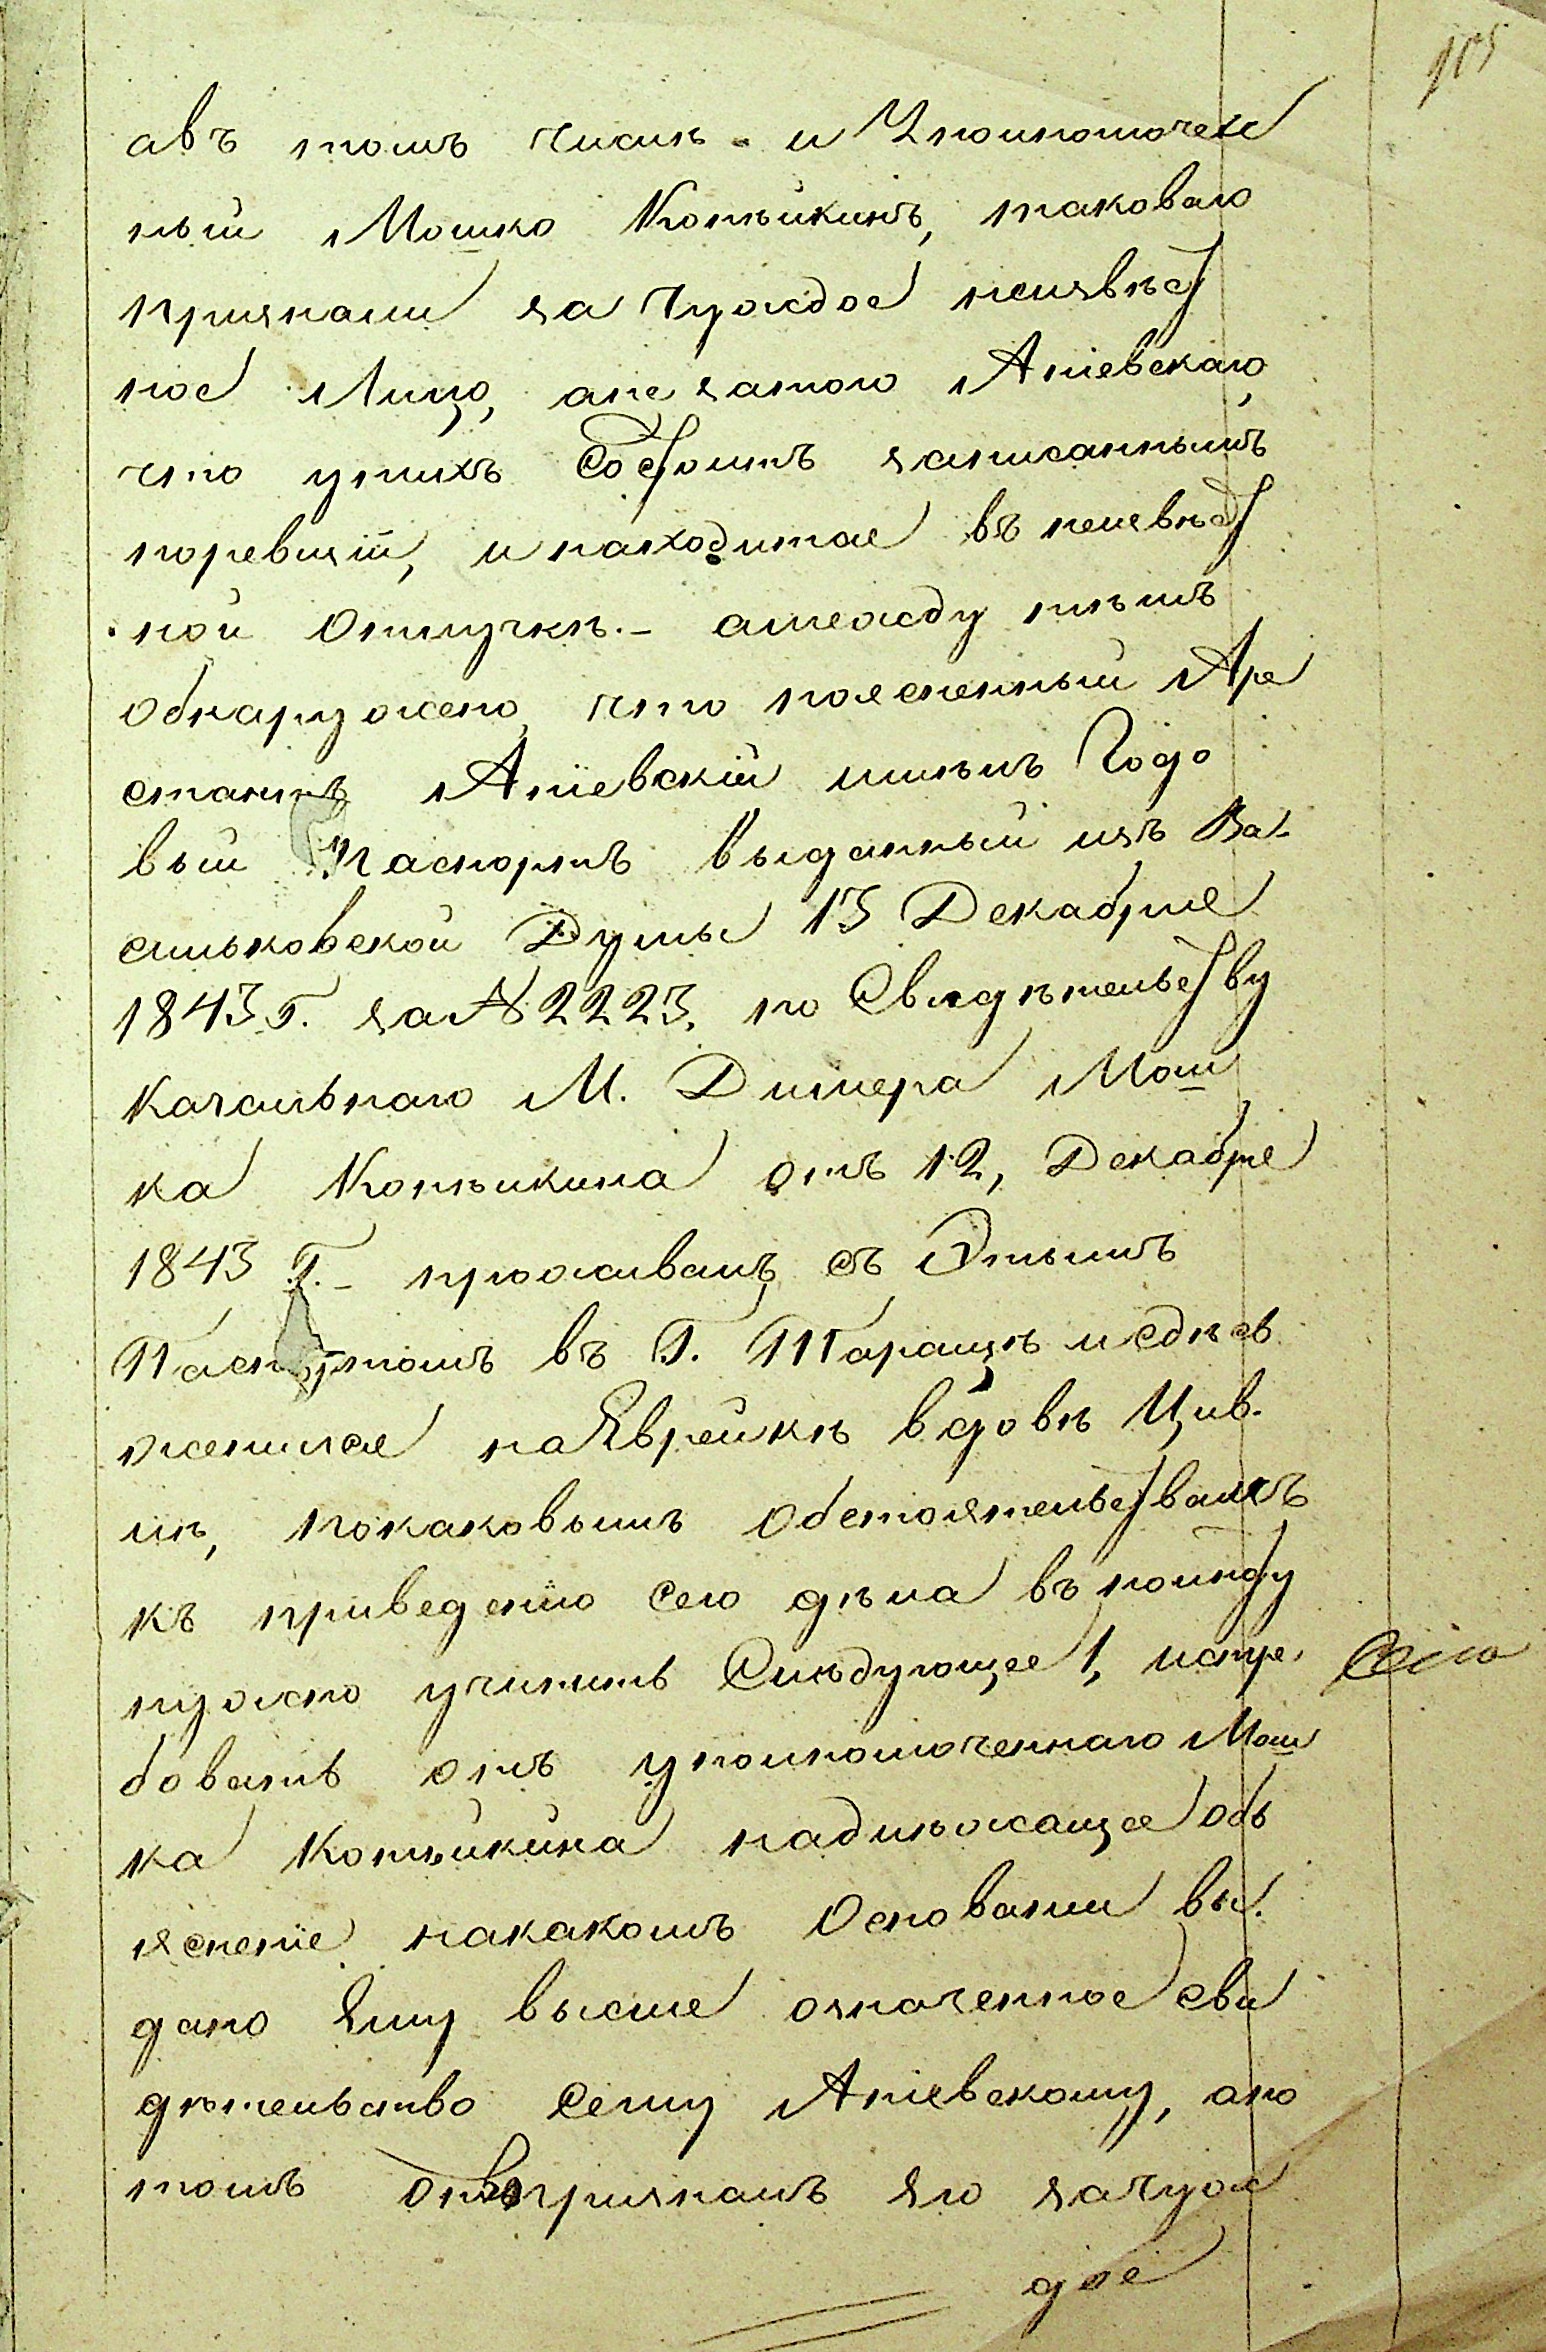 105
авъ томъ числѣ - и Уполномочен
ный Мошко Копѣйкинъ, таковаго
признали за Чуждое неизвѣст
ное Лицо, ане затого Апіевскаго,
что унихъ Состоитъ записаннымъ
поревизіи, и находится въ неизвѣст
ной Отлучкѣ.- амежду тѣмъ
Обнаружено, что поясненный Аре
стантъ Апіевскій имѣлъ Годо
вый Паспортъ выданный изъ Ва-
сильковской Думы 13 Декабря
1843 Г. за № 2223, по Свидѣтельству
Кагальнаго М. Димера Мош
ка Копѣйкина отъ 12, Декабря
1843 Г.- проживалъ съ Этымъ
Паспортомъ въ Г. Таращѣ и здѣсь
женился на Еврейкѣ вдовѣ Цив-
лѣ, покаковымъ Обстоятельствамъ
къ приведенію Сего дѣла въ полноту
нужно учинить Слѣдующее 1, истре-
бовать отъ уполномоченнаго Мош
ка Копѣйкина надлежащее Объ
ясненіе накакомъ Основании вы-
дано Ему высше означенное сви
дѣтельство Сему Апіевскому, апо
томъ призналъ Его зачуж
дое